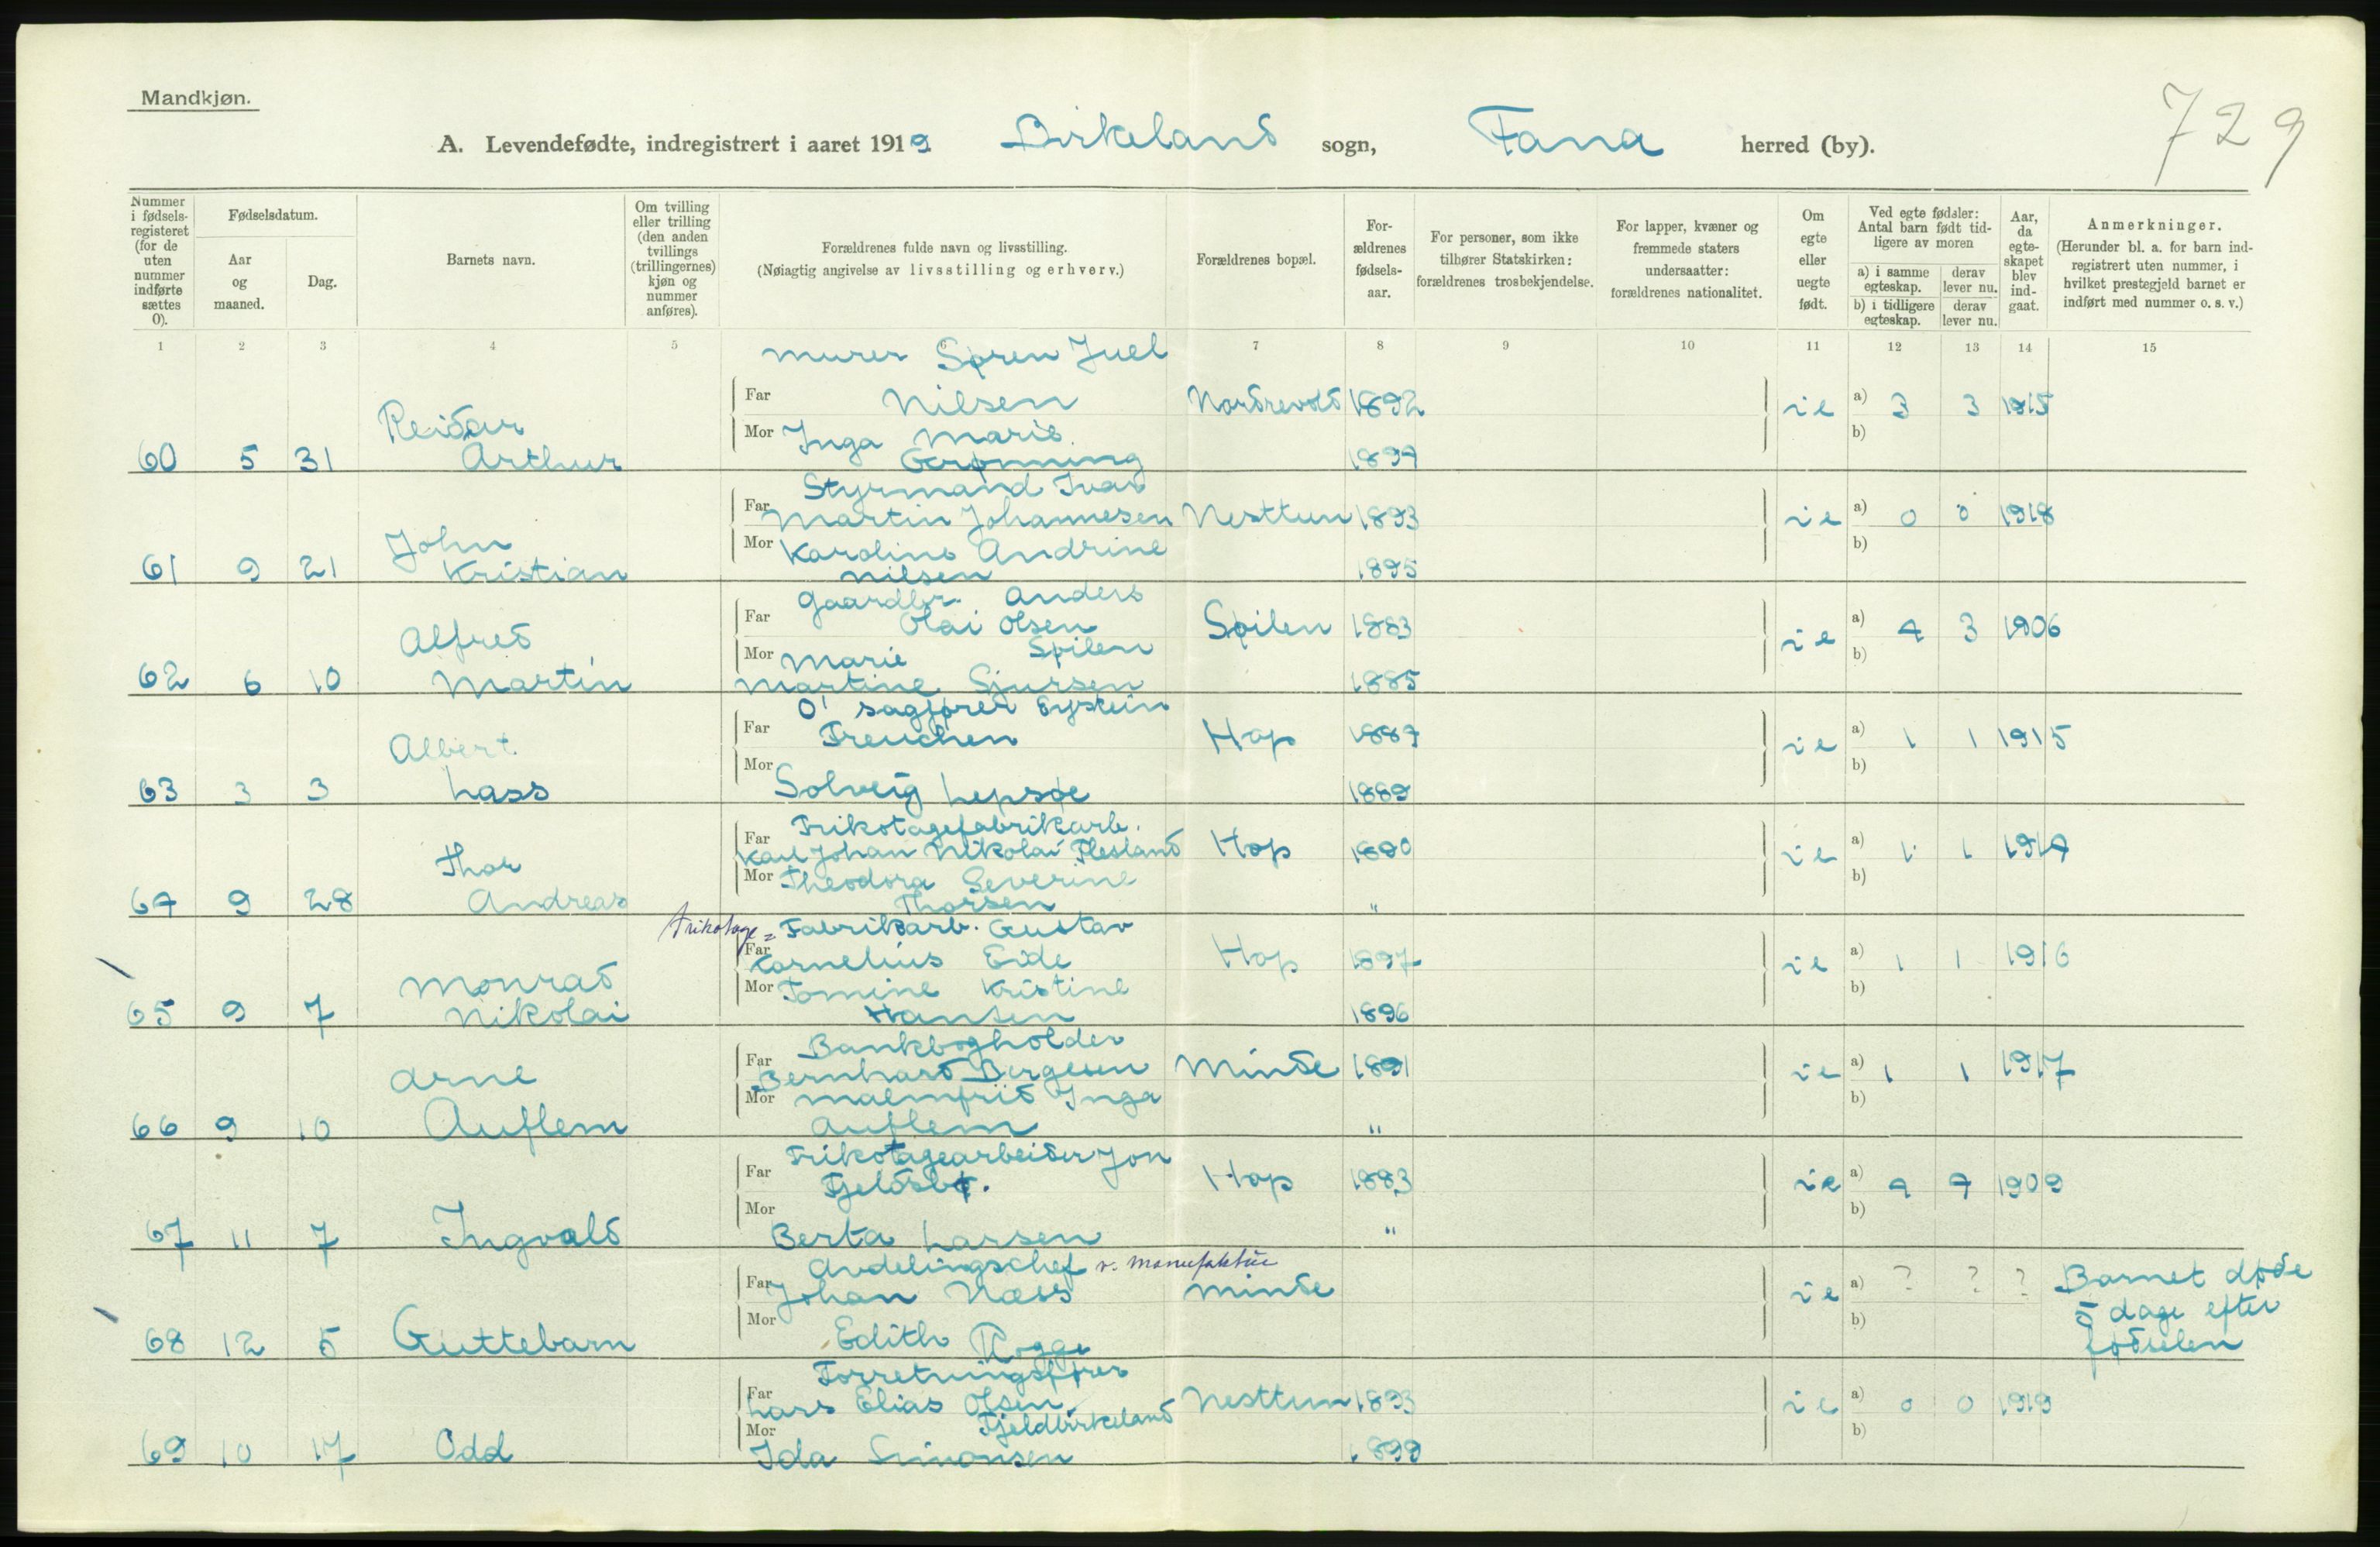 Mandkjøn.
729
A. Levendefødte, indregistrert i aaret 1919 Birkeland sogn, Fana herred (by).
Nummer i fødsels-registeret (for de uten nummer indførte sættes 0).
Fødselsdatum.
Aar og maaned.
Dag.
Barnets navn.
Om tvilling eller trilling (den anden tvillings (trillingernes) kjøn og nummer anføres).
Forældrenes fulde navn og livsstilling.
(Nøiagtig angivelse av livsstilling og erhverv.)
Forældrenes bopæl.
For-ældrenes fødsels-aar.
For personer, som ikke tilhører Statskirken: forældrenes trosbekjendelse.
For lapper, kvæner og fremmede staters undersaatter: forældrenes nationalitet.
Om egte eller uegte født.
Ved egte fødsler: Antal barn født tid-ligere av moren
a) i samme egteskap.
derav lever nu.
b) i tidligere egteskap.
derav lever nu.
Aar, da egte-skapet blev ind-gaat.
Anmerkninger.
(Herunder bl. a. for barn ind-registrert uten nummer, i hvilket prestegjeld barnet er indført med nummer o. s. v.)
1 2 3 4 5 6 7 8 9 10 11 12 13 14 15
murer Søren Juel
Far Nilsen Nordrevold 1892 ie a) 3 3 1915
Reidar
Mor Inga Marie b)
60 5 31 Arthur Grønning 1897
Styrmand Ivar
Far Martin Johannesen Nesttun 1893 ie a) 0 0 1918
John
Mor Karoline Andrine b)
61 9 21 Kristian Nilsen 1895
Gaardbr. Anders
Far Olai Olsen Spilen 1883 ie a) 4 3 1906
Alfred Spilen
Mor Marie b)
62 6 10 Martin Martine Sjursen 1885
O' sagfører Eystein
Far Freuchen Hop 1887 ie a) 1 1 1915
Albert
Mor b)
63 3 3 Lass Solveig Lepsøe 1889
Trikotagefabrikarb.
Far Karl Johan Nikolai Flesland Hop 1890 ie a) 1 1 1914
Thor
Mor Theodora Severine b)
64 9 28 Andreas Thorsen "
trikotage = Fabrikarb. Gustav
Far Kornelius Eide Hop 1897 ie a) 1 1 1916
Monrad
Mor Tomine Kristine b)
65 9 7 Nikolai Hansen 1896
Bankbogholder
Far Bernhard Bergesen Minde 1891 ie a) 1 1 1917
Arne
Mor Malmfrid Inga b)
66 9 10 Auflem Auflem "
Trikotagearbeider Jon
Far Fjeldsbø. Hop 1883 ie a) 4 4 1909
Mor b)
67 11 7 Ingvald Berta Larsen "
Avdelingschef v. Manufaktur
Far Johan Næss Minde ie a) ? ? ? Barnet døde
Mor b) 5 dage efter
68 12 5 Guttebarn Edith Rogge fødselen
Forretningsfører
Far Lars Elias Olsen Nesttun 1893 ie a) 0 0 1919
Fjeldbirkeland
Mor b)
69 10 17 Odd Ida Simonsen 1899